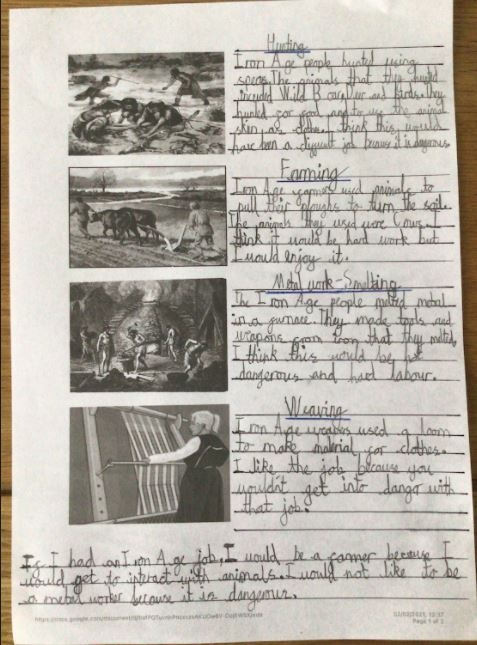 Hunting
Iron Age people hunted using
spears. The animals that they hunted
included Wild Boar, deer and birds. They
hunted for food and to use the animal
skin as clothes. I think this would
have been a difficult job because it is dangerous.
Farming
Iron Age farmers used animals to
pull their ploughs to turn the soil.
The animals they used were Cows. I
think it would be hard work but
I would enjoy it.
Metal work - Smelting
The Iron Age people melted metal
in a furnace. They made tools and
weapons from iron that they melted.
I think this would be hot
dangerous and hard labour.
Weaving
Iron Age weavers used a loom
to make material for clothes.
I like the job because you
wouldn't get into danger with
that job.
If I had an Iron Age job, I would be a farmer because I
would get to interact with animals. I would not like to be
a metal worker because it is dangerous.
02/02/2021, 12:37
Page 1 of 2